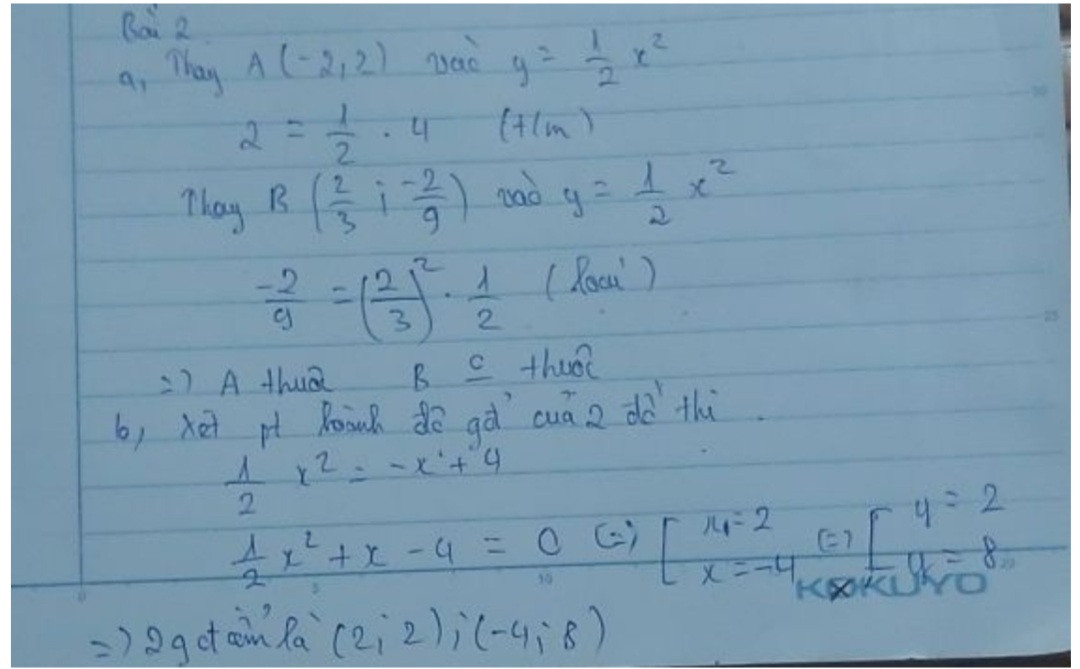 Bài 2
a, Thay A (-2,2) vào y = 1/2 x²
2 = 1/2 . 4 (t/m)
Thay B (2/3 ; -2/9) vào y = 1/2 x²
-2/9 = (2/3)² . 1/2 (loại)
=> A thuộc B c thuộc
b, Xét pt hoành độ gđ của 2 đồ thị .
1/2 x² = -x + 4
1/2 x² + x - 4 = 0 (=) [ x = 2 x = -4 (=) [ y = 2 y = 8
KOKUYO
=> 2 gđ cần là (2; 2) ; (-4; 8)